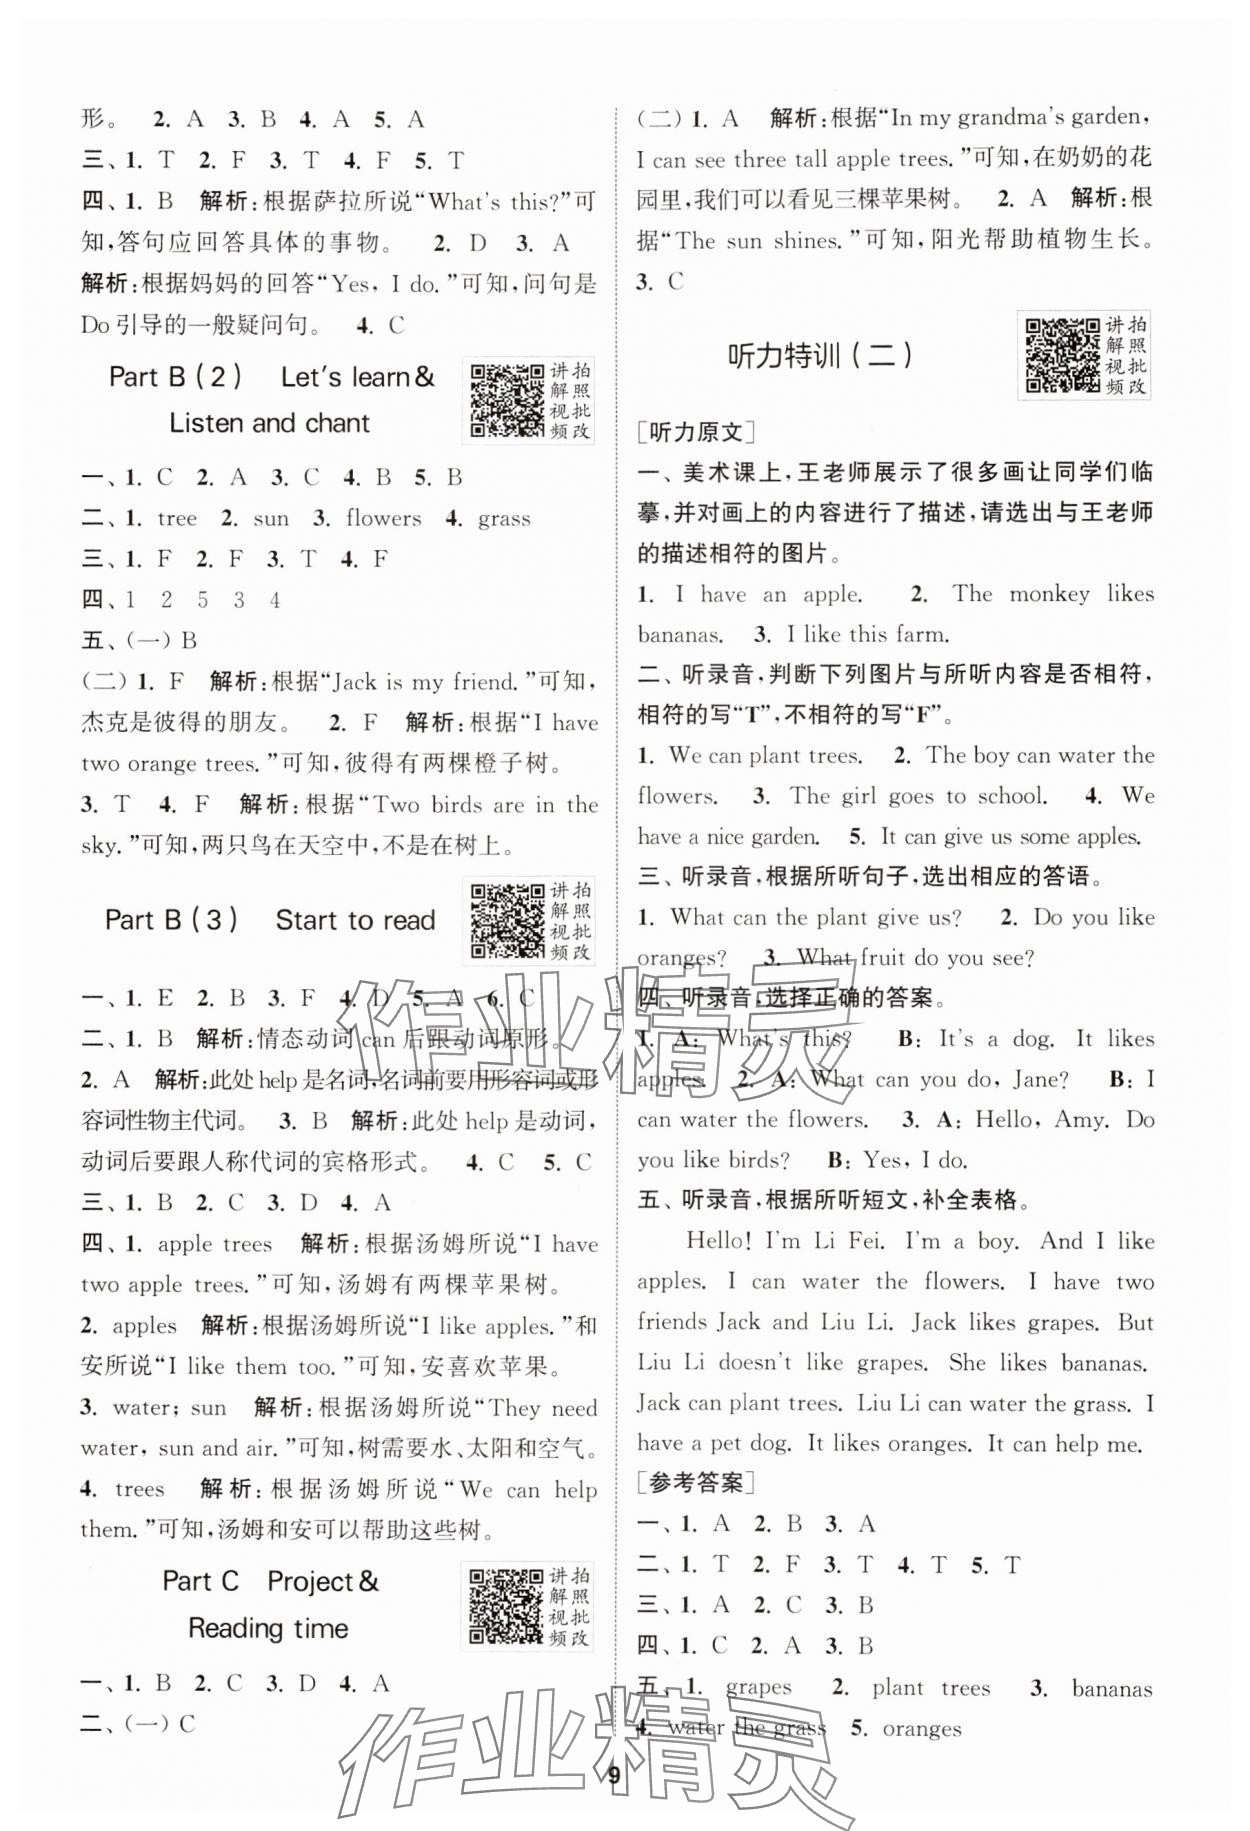 形。 2. A 3. B 4. A 5. A
三、1. T 2. F 3. T 4. F 5. T
四、1. B 解析:根据萨拉所说“What's this?”可
知,答句应回答具体的事物。 2. D 3. A
解析:根据妈妈的回答“Yes, I do.”可知,问句是
Do引导的一般疑问句。 4. C
Part B(2) Let's learn&
Listen and chant
讲拍
解照
视批
频改
一、1. C 2. A 3. C 4. B 5. B
二、1. tree 2. sun 3. flowers 4. grass
三、1. F 2. F 3. T 4. F
四、1 2 5 3 4
五、(一)B
(二)1. F 解析:根据“Jack is my friend.”可知,
杰克是彼得的朋友。 2. F 解析:根据“I have
two orange trees.”可知,彼得有两棵橙子树。
3. T 4. F 解析:根据“Two birds are in the
sky.”可知,两只鸟在天空中,不是在树上。
Part B(3) Start to read
讲拍
解照
视批
频改
一、1. E 2. B 3. F 4. D 5. A 6. C
二、1. B 解析:情态动词can后跟动词原形。
2. A 解析:此处help是名词,名词前要用形容词或形
容词性物主代词。 3. B 解析:此处help是动词,
动词后要跟人称代词的宾格形式。 4. C 5. C
三、1. B 2. C 3. D 4. A
四、1. apple trees 解析:根据汤姆所说“I have
two apple trees.”可知,汤姆有两棵苹果树。
2. apples 解析:根据汤姆所说“I like apples.”和
安所说“I like them too.”可知,安喜欢苹果。
3. water; sun 解析:根据汤姆所说“They need
water, sun and air.”可知,树需要水、太阳和空气。
4. trees 解析:根据汤姆所说“We can help
them.”可知,汤姆和安可以帮助这些树。
Part C Project&
Reading time
讲拍
解照
视批
频改
一、1. B 2. C 3. D 4. A
二、(一)C
(二)1. A 解析:根据“In my grandma's garden,
I can see three tall apple trees.”可知,在奶奶的花
园里,我们可以看见三棵苹果树。 2. A 解析:根
据“The sun shines.”可知,阳光帮助植物生长。
3. C
听力特训(二)
讲拍
解照
视批
频改
[听力原文]
一、美术课上,王老师展示了很多画让同学们临
摹,并对画上的内容进行了描述,请选出与王老师
的描述相符的图片。
1. I have an apple. 2. The monkey likes
bananas. 3. I like this farm.
二、听录音,判断下列图片与所听内容是否相符,
相符的写“T”,不相符的写“F”。
1. We can plant trees. 2. The boy can water the
flowers. 3. The girl goes to school. 4. We
have a nice garden. 5. It can give us some apples.
三、听录音,根据所听句子,选出相应的答语。
1. What can the plant give us? 2. Do you like
oranges? 3. What fruit do you see?
四、听录音,选择正确的答案。
1. A: What's this? B: It's a dog. It likes
apples. 2. A: What can you do, Jane? B: I
can water the flowers. 3. A: Hello, Amy. Do
you like birds? B: Yes, I do.
五、听录音,根据所听短文,补全表格。
Hello! I'm Li Fei. I'm a boy. And I like
apples. I can water the flowers. I have two
friends Jack and Liu Li. Jack likes grapes. But
Liu Li doesn't like grapes. She likes bananas.
Jack can plant trees. Liu Li can water the grass. I
have a pet dog. It likes oranges. It can help me.
[参考答案]
一、1. A 2. B 3. A
二、1. T 2. F 3. T 4. T 5. T
三、1. A 2. C 3. B
四、1. C 2. A 3. B
五、1. grapes 2. plant trees 3. bananas
4. water the grass 5. oranges
9
作业精灵
作业精灵